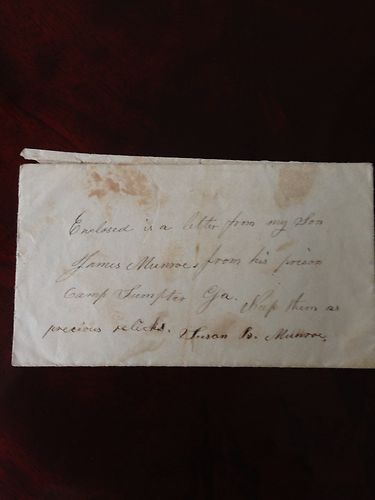 Enclosed is a letter from my Son
James Munroe, from his prison
Camp Sumpter Ga. Keep them as
precious relicks. Susan B. Munroe,